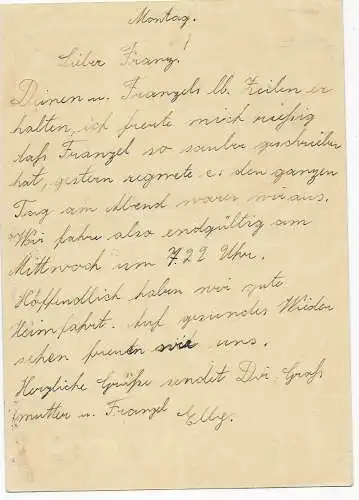 Montag.
Lieber Franz!
Deinen u. Franzels lb. Zeilen er
halten, ich freute mich rießig
daß Franzel so sauber geschrieben
hat, gestern regnete e: den ganzen
Tag am Abend waren wir aus.
Wir fahre also endgültig am
Mittwoch um 722 Uhr.
Hoffendlich haben wir gute
Heimfahrt. Auf gesundes Wieder
sehen freuen wir uns.
Herzliche Grüße sendet Dir, Groß
mutter u. Franzel Elly.